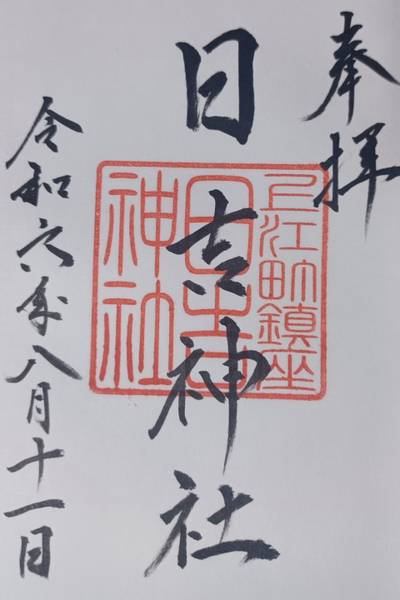 奉拝
日吉神社
令和六年八月十一日
鎮座
日吉
神社